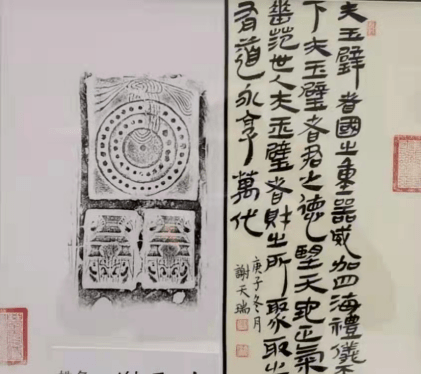 夫玉璧者國之重器威加四海禮儀
下夫玉璧者君之德堅天地正氣
垂范世人夫玉璧者財之所聚取之
有道永享萬代
庚子冬月
謝天瑞